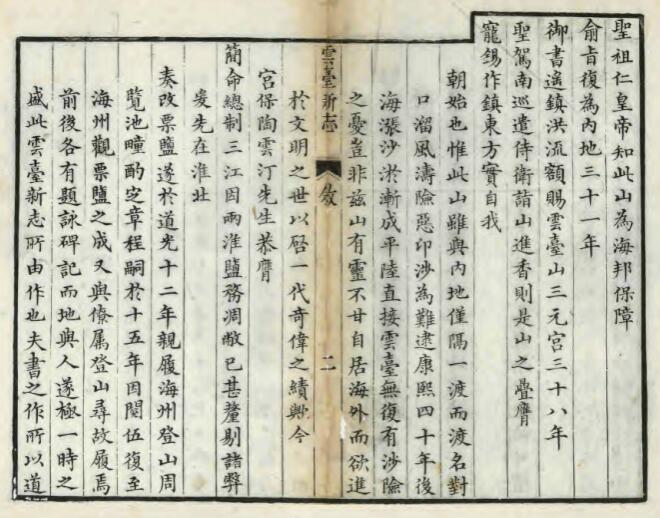 聖祖仁皇帝知此山為海邦保障
俞旨復為內地三十一年
御書遙鎮洪流額賜雲臺山三元宮三十八年
聖駕南巡遣侍衛詣山進香則是山之疊膺
寵錫作鎮東方實自我
朝始也惟此山雖與內地僅隔一渡而渡名對
口溜風濤險惡印涉為難逮康熙四十年後
海漲沙淤漸成平陸直接雲臺無復有涉險
之憂豈非茲山有靈不甘自居海外而欲進
雲臺新志
敘
二
於文明之世以啓一代奇偉之績歟今
宮保陶雲汀先生恭膺
簡命總制三江因兩淮鹽務凋敝已甚釐剔諸弊
爰先在淮北
奏改票鹽遂於道光十二年親履海州登山周
覽池疃酌定章程嗣於十五年因閱伍復至
海州觀票鹽之成又與僚属登山尋故履焉
前後各有題詠碑記而地與人遂極一時之
盛此雲臺新志所由作也夫書之作所以道